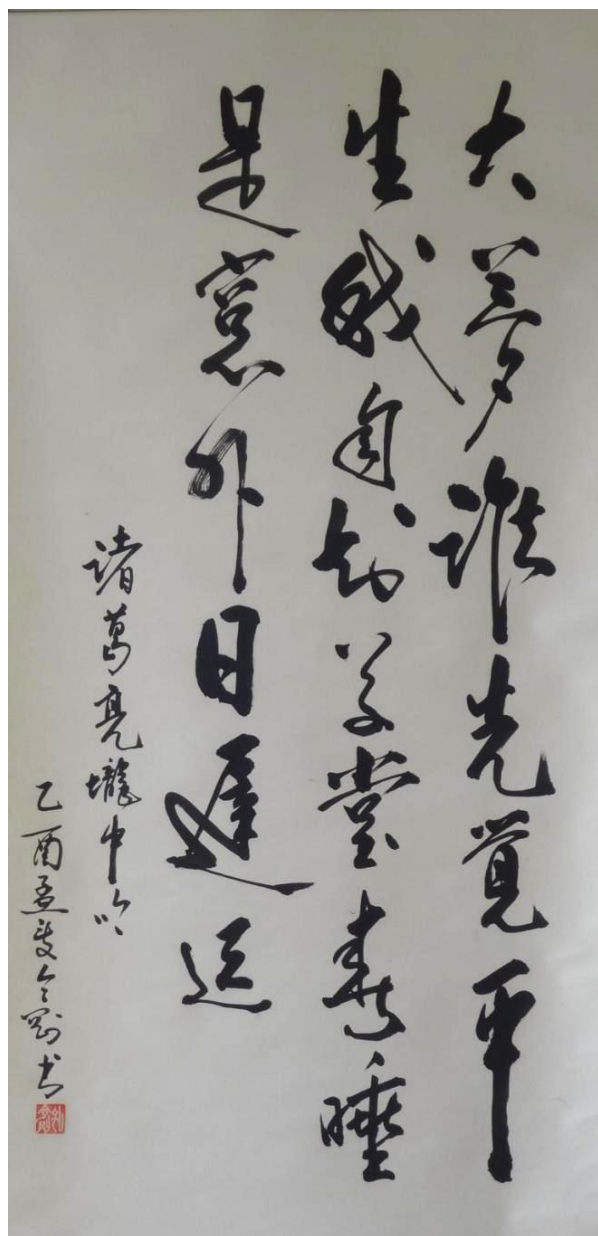 大夢誰先覺平
生我自知草堂春睡
足窓外日遲迟
諸葛亮壠中吟
乙酉孟夏令剛书